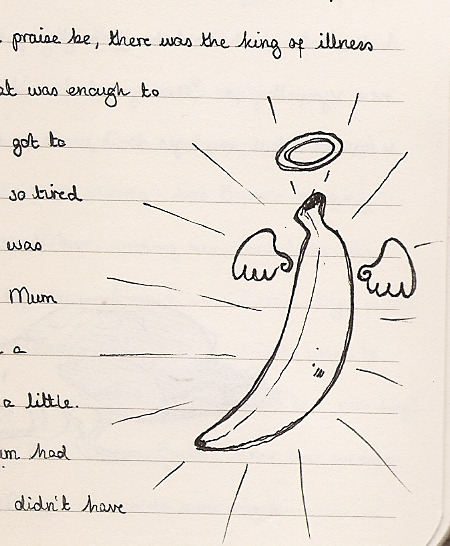 praise be, there was the king of illness
at was enough to
got to
so tired
was
Mum
a
a little.
um had
didn't have